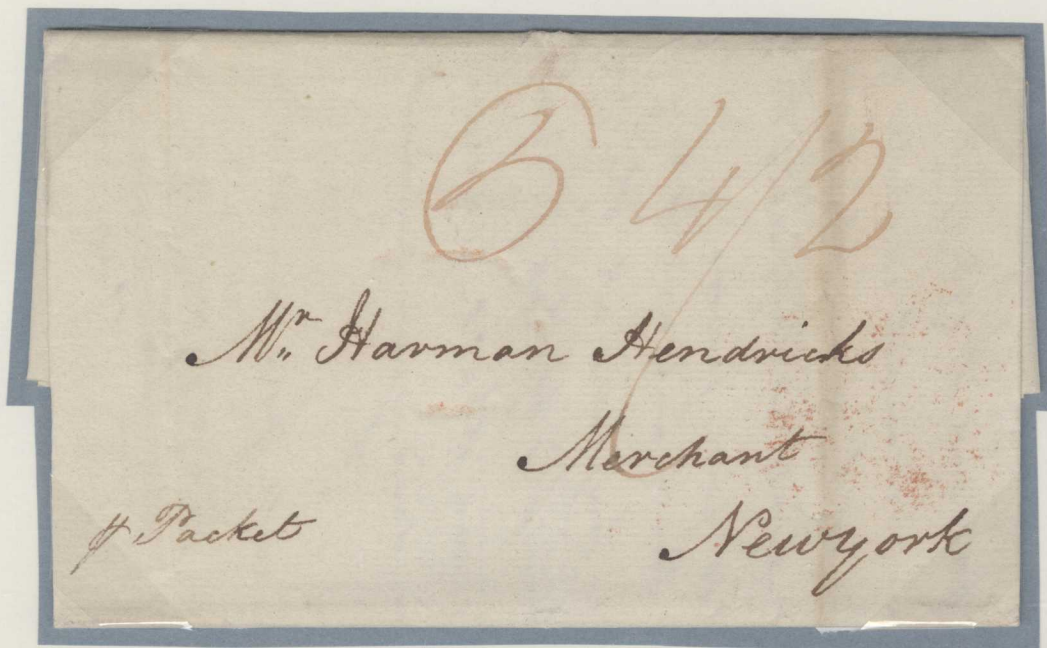 6 4/2
Mr. Harman Hendricks
Merchant
Newyork
⅌ Packet